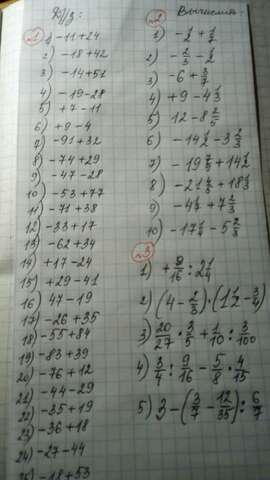 Д/з:
№1 1) -11+24
2) -18+42
3) -14+51
4) -19-28
5) +7-11
6) +9-4
7) -91+32
8) -74+29
9) -47-28
10) -53+77
11) -71+38
12) -33+17
13) -62+34
14) +17-24
15) +29-41
16) 47-19
17) -26+35
18) -55+84
19) -83+39
20) -76+12
21) -44-29
22) -35+19
23) -36+18
24) -27-44
25) -18+53
№2 Вычислить:
2) -2/3 - 1/2
3) -6+3/7
4) +9-4 1/3
5) 12-8 2/5
6) -14 1/2 - 3 2/3
8) -21 2/3 + 18 1/3
10) -17 1/4 - 5 2/3
№3
1) + 9/16 : 2 1/4
2) (4 - 2/3) · (1 1/2 - 3/4)
3) 20/27 · 3/5 + 1/10 : 3/100
4) 3/4 : 9/16 - 5/8 · 4/15
5) 3 - (3/7 - 12/35) : 6/7